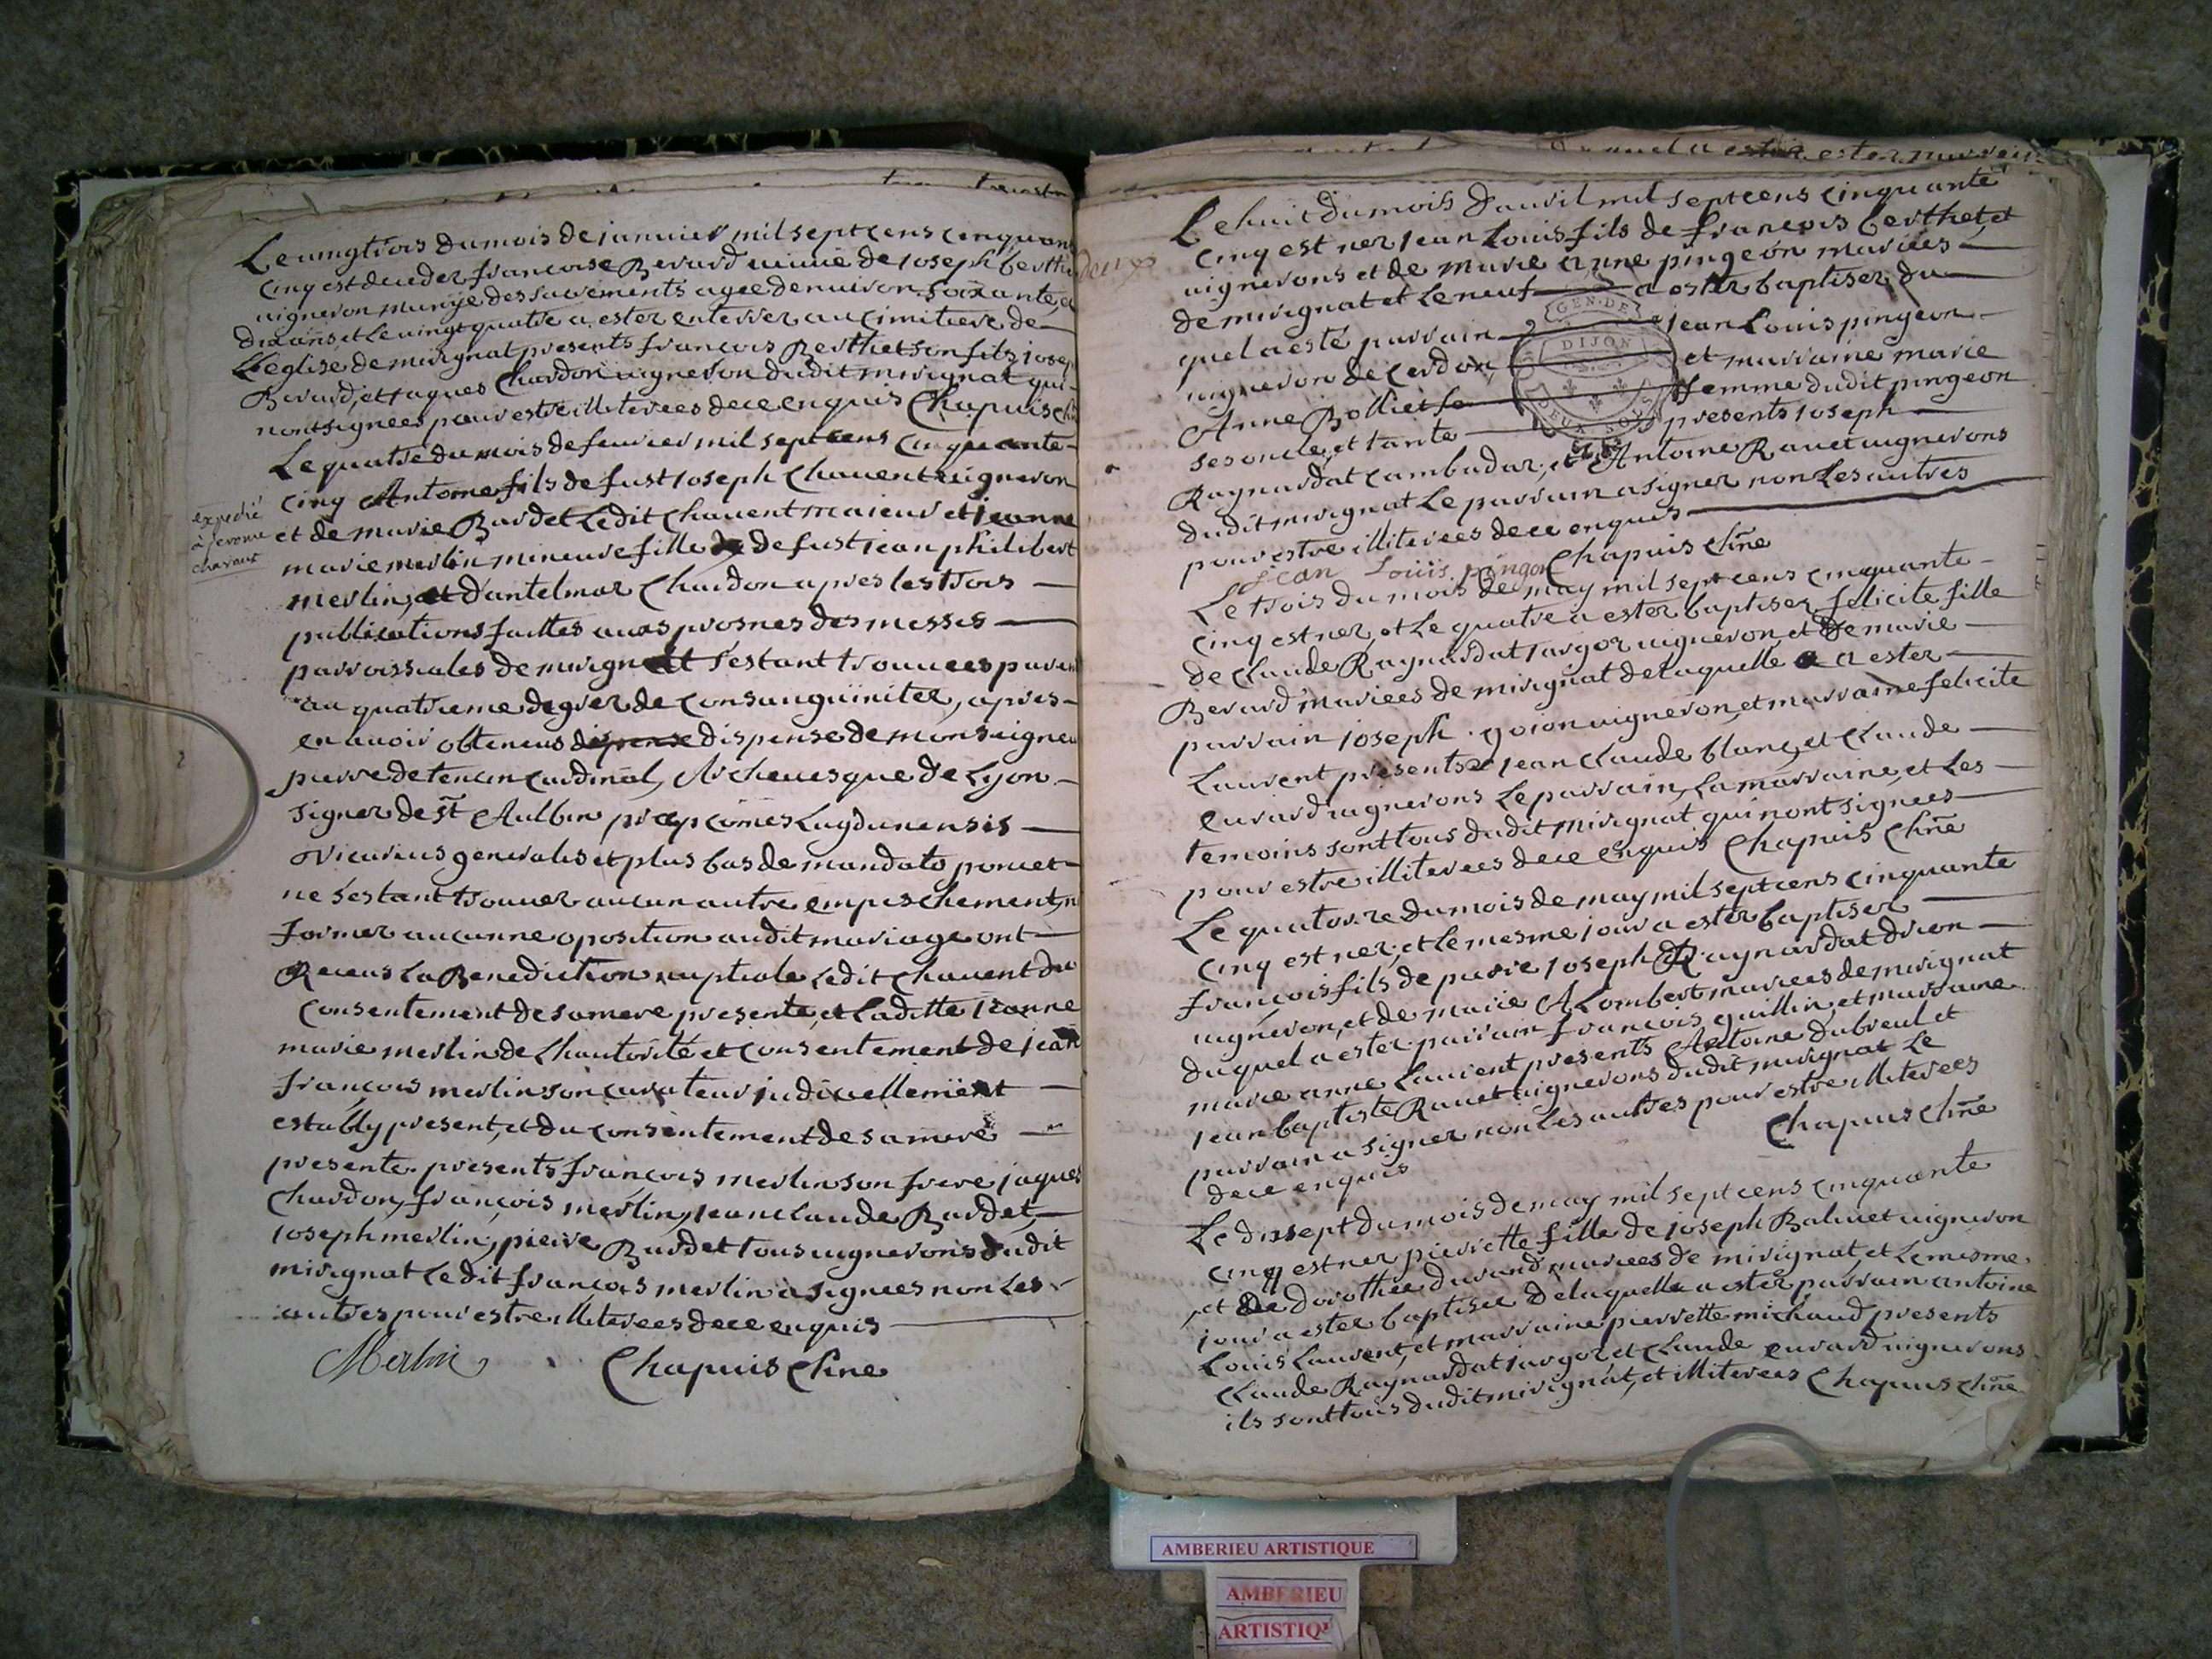 Le vingtrois du mois de janvier mil sept cens cinquan
cinq est deceder francoise Berard veuve de ioseph berth
vigneron munye des sacrements agee denviron soixante, et
dix ans et le vingt quatre a ester enterrer au cimitiere de
Leglise de mirignat presents francois Berthet son fils iosep
Berard, et jaques Chardon vigneron dudit mirignat qui
nont signees pour estre illiterees de ce enquis Chapuis
Le quatre du mois de fevrier mil sept cens cinquante
cinq Antoine fils de fust ioseph Chavent vigneron
expedié
à
chavant
et de marie Bardet Ledit Chavent maieur et jeanne
marie merlin mineure fille de fust jean philibert
merlin, et dantelmar Chardon apres les trois
publications faittes au prosnes des messes
parroissiales de mirignat s'estant trouvees paren
au quatrieme degrer de Consanguiniter, apres
en avoir obtenus dispense dispense de monseigneu
pierre de tencin Cardinal, Archevesque de Lyon
signer de st Aulbin comes Lugdunensis
vicarius generalis et plus bas de mandato poncet
ne s'estant trouver aucun autre empeschement, n
former aucunne oposition audit mariage ont
Receus La Benediction nuptiale Ledit Chavent du
Consentement de sa mere presente, et Laditte jeanne
marie merlin de Lhautorité et Consentement de jean
francois merlin son curateur judiciellement
estably present, et du consentement de sa mere
presente presents francois merlin son frere jaques
Chardon, françois merlin, jean claude Bardet,
ioseph merlin, pierre Bardet tous vignerons dudit
mirignat Ledit francois merlin a signees non Les
autres pour estre illiterees de ce enquis
Merlin Chapuis
deux
Le huit du mois d'avril mil sept cens cinquante
cinq est ner jean Louis fils de francois berthet, et
vignerons et de marie anne pingeon mariees
de mirignat et Le neuf a ester baptiser du
quel a esté parrain jean Louis pingeon
vigneron de cerdon, et marraine marie
Anne Bolliet femme dudit pingeon
ses oncle, et tante presents ioseph
GEN. DE
DIJON
DEUX SOLS
Raynardat cambadar, et Antoine Ravet vignerons
dudit mirignat Le parrain a signer non Les autres
pour estre illiterees de ce enquis
jean Loüis pingon Chapuis
Le trois du mois de may mil sept cens cinquante
cinq est ner, et Le quatre a ester baptiser felicite fille
de Claude Raynardat jargor vigneron, et de marie
Berard mariees de mirignat de laquelle a ester
parrain ioseph goion vigneron, et marraine felicite
Laurent presents jean Claude blanc, et Claude
evrard vignerons Le parrain, La marraine, et Les
temoins sont tous dudit mirignat qui nont signees
pour estre illiterees de ce enquis Chapuis
Le quatorze du mois de may mil sept cens cinquante
cinq est ner, et le mesme jour a ester baptiser
françois fils de pierre ioseph Raynardat
vigneron, et de marie ALombert mariees de mirignat
duquel a ester parrain françois guillin, et marraine
marie anne Laurent presents Antoine dubreul et
jean baptiste Ravet vignerons dudit mirignat Le
parrain a signer non Les autres pour estre illiterees
de ce enquis Chapuis
Le dixsept du mois de may mil sept cens cinquante
cinq est ner pierrette fille de ioseph Balivet vigneron
et de dorothee durand mariees de mirignat, et Le mesme
jour a ester baptisee de laquelle a ester parrain antoine
Louis Laurent, et marraine pierrette michaud presents
Claude Raynardat jargor, et Claude evrard vignerons
ils sont tous dudit mirignat, et illiterees Chapuis
AMBERIEU ARTISTIQUE
AMBERIEU
ARTISTIQ